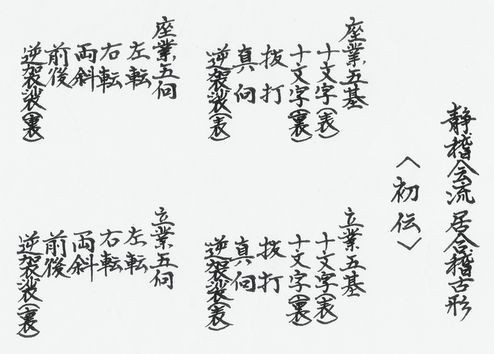 静稽会流 居合稽古形
〈初伝〉
座業五基
十文字(表)
十文字(裏)
抜打
真向
逆袈裟(表)
座業五向
左転
右転
両斜
前後
逆袈裟(裏)
立業五基
十文字(表)
十文字(裏)
抜打
真向
逆袈裟(表)
立業五向
左転
右転
両斜
前後
逆袈裟(裏)